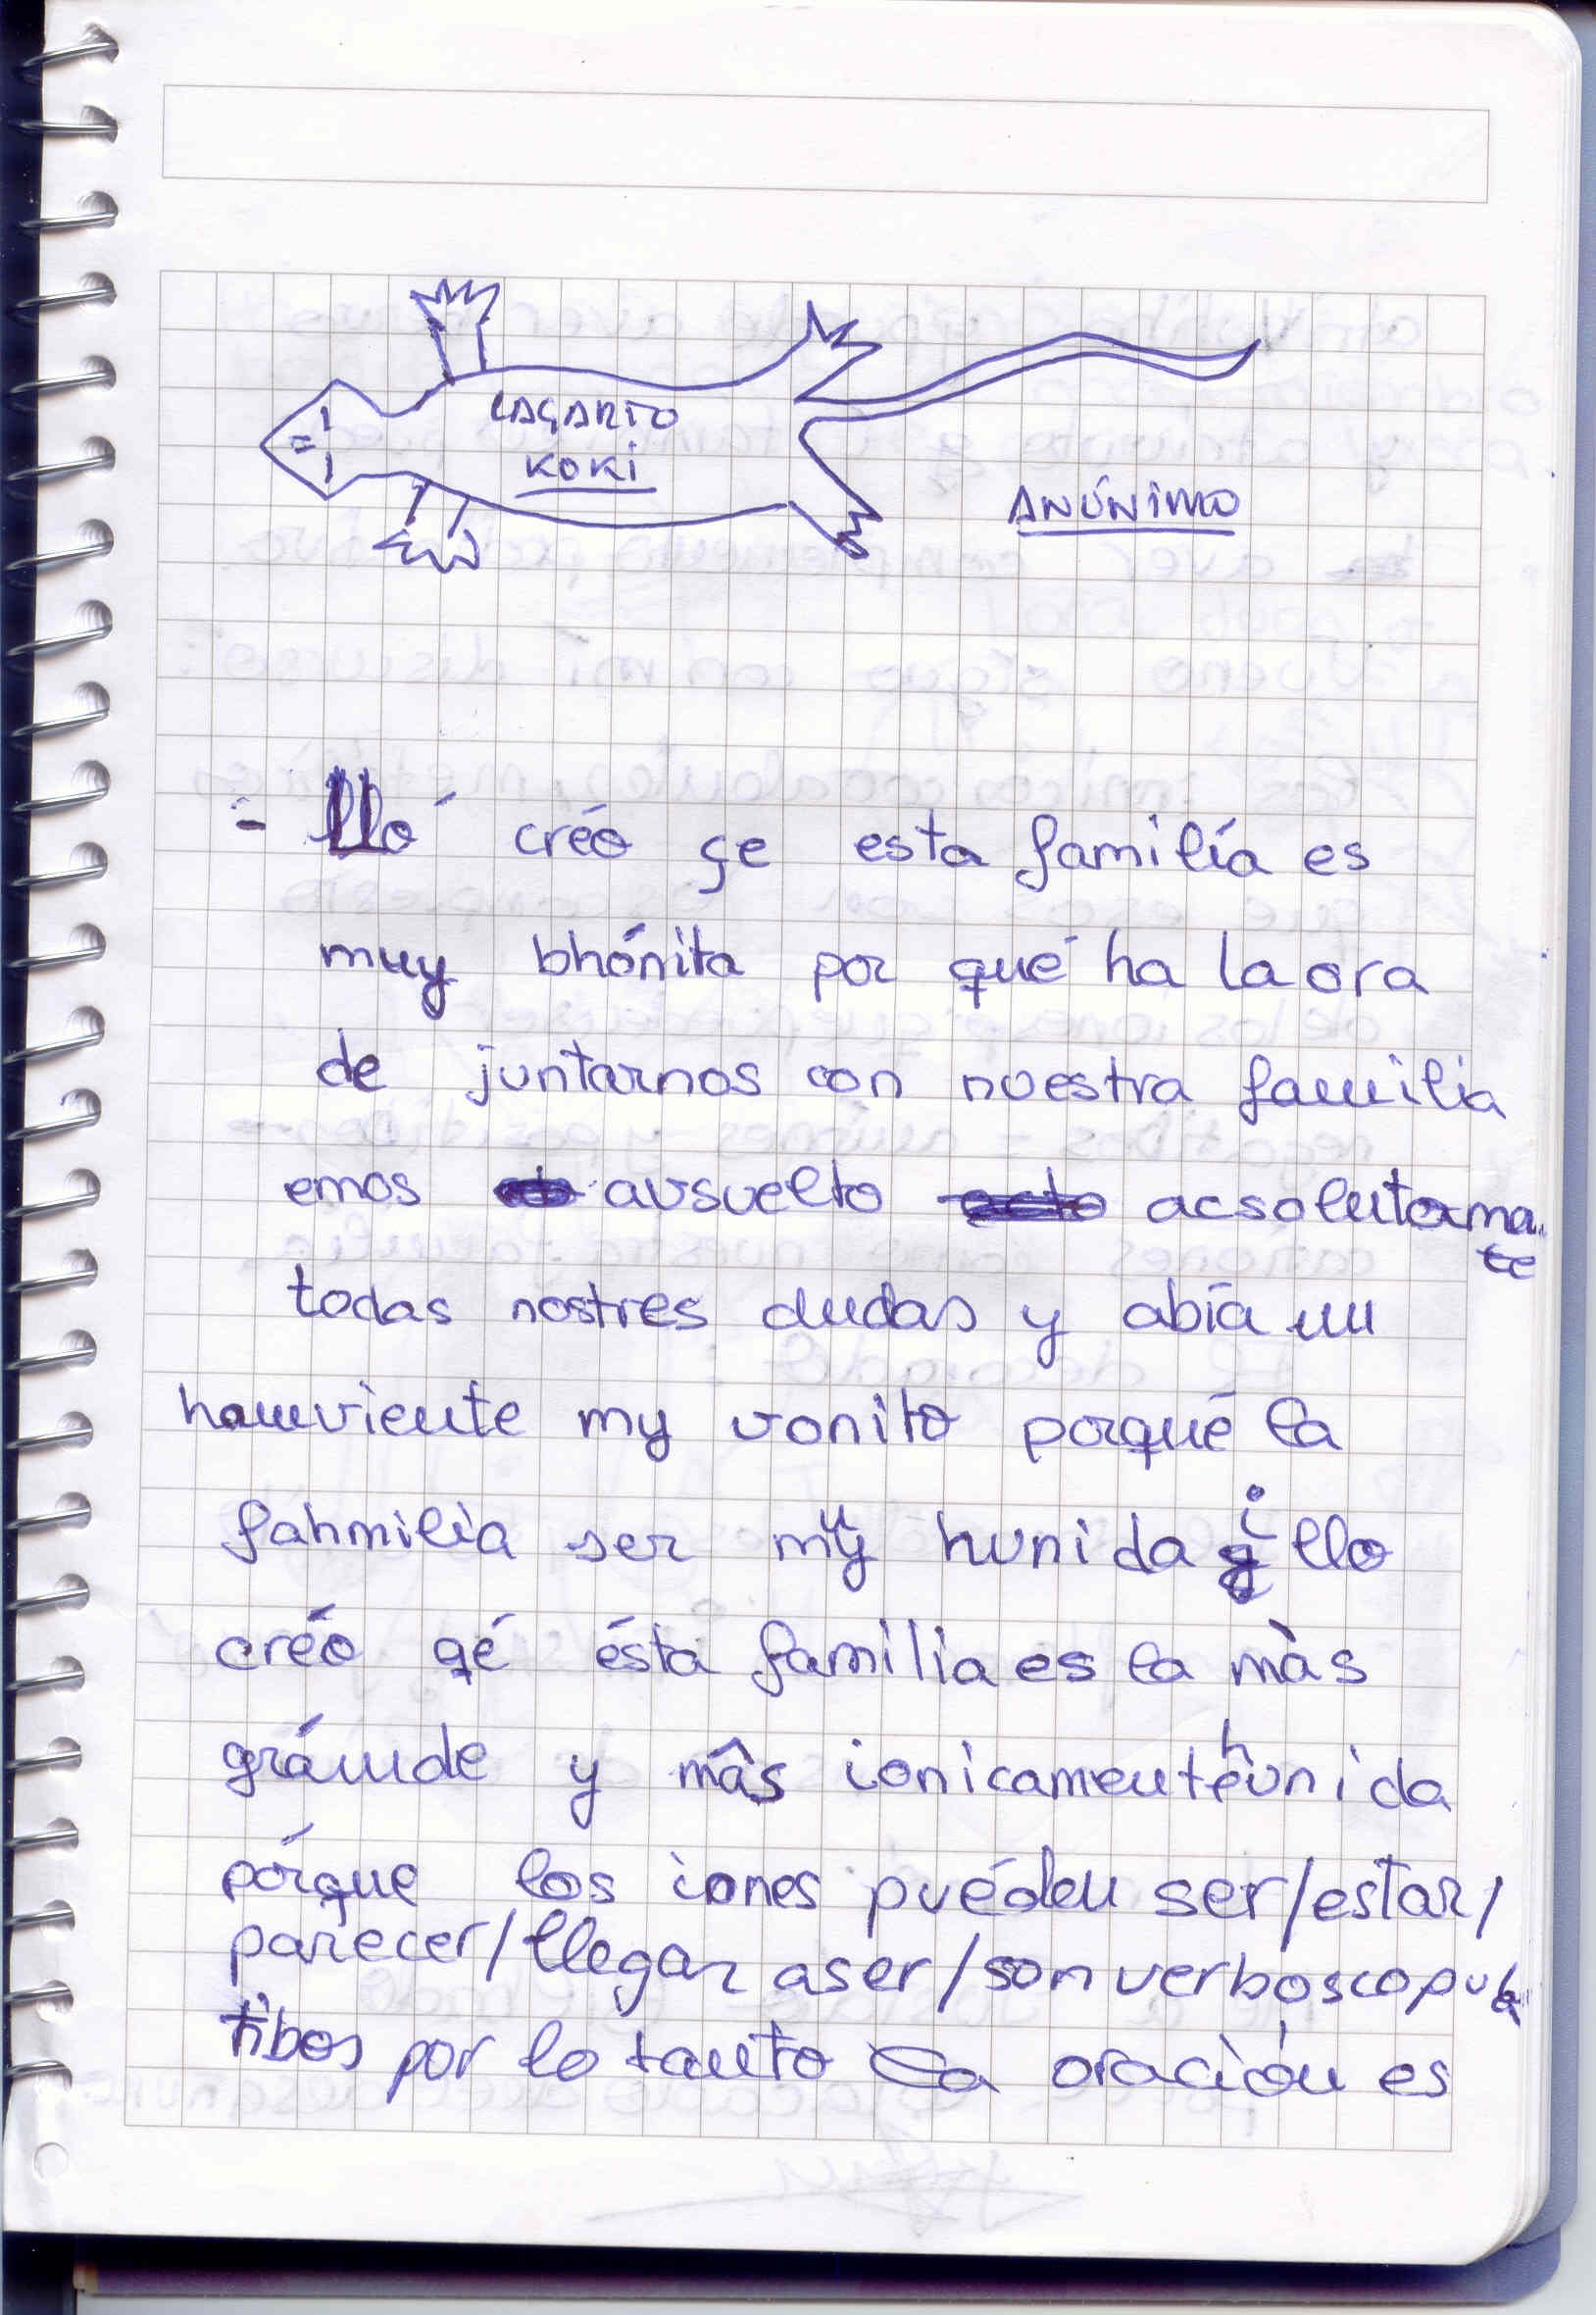 LAGARTO
KOKI
ANÓNIMO
- lló créo çe esta família es
muy bhónita por qué ha la ora
de juntarnos con nuestra familia
emos avsuelto acsolutama
te
todas nostres dudas y abía un
hamviente my vonito porqué la
fahmilia ser muy hunida i llo
créo qé ésta familia es la màs
gránde y mâs ionicamente hunida
pórque los iones puéden ser/estar/
parecer/llegar a ser/son verbos copula
tibos por lo tanto la oración es